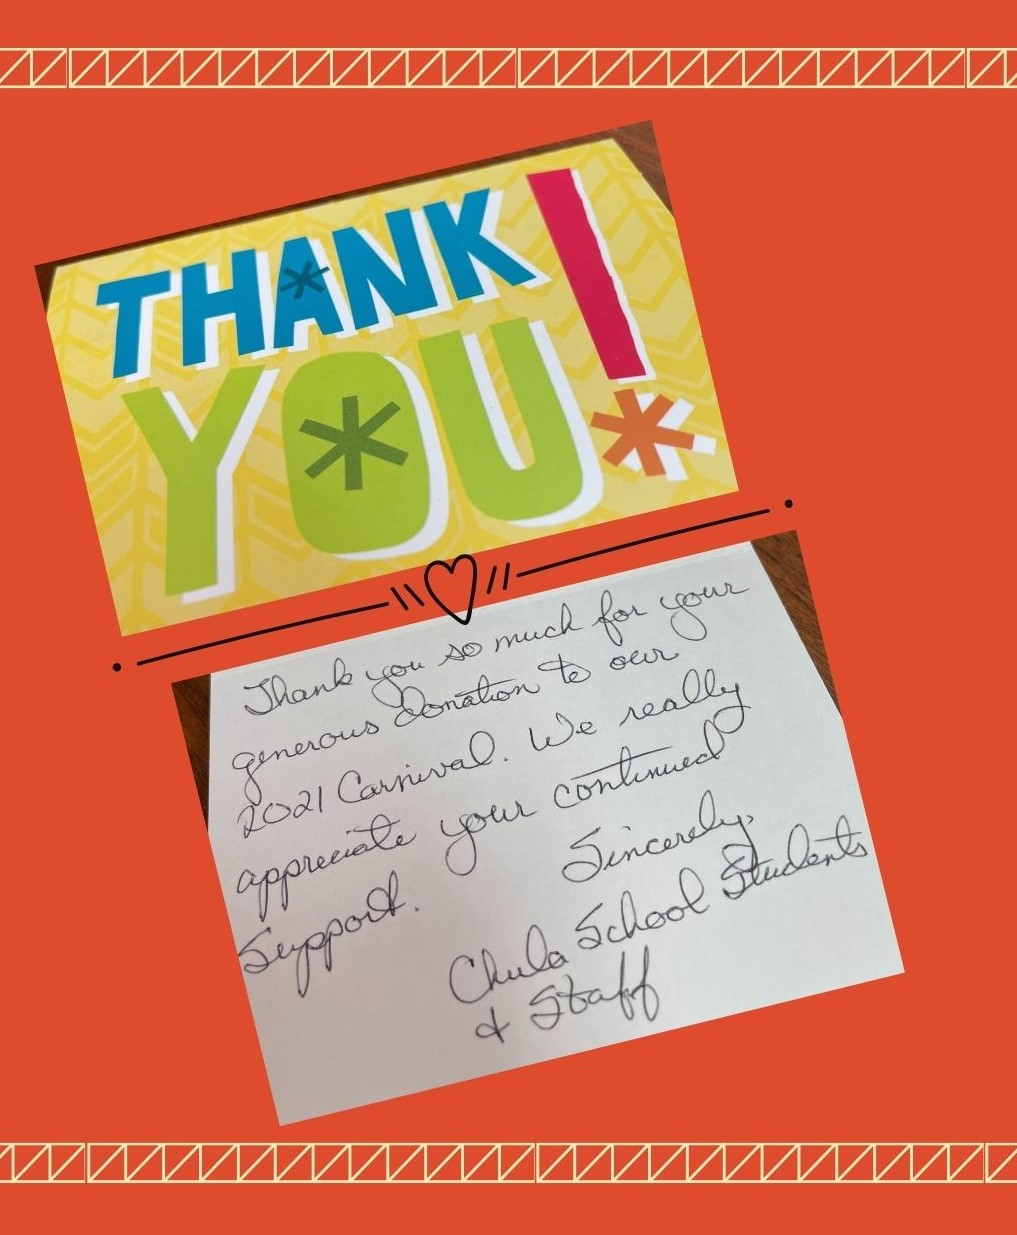 THANK
YOU!
Thank you so much for your
generous donation to our
2021 Carnival. We really
appreciate your continued
Support.
Sincerely,
Chula School Students
& Staff